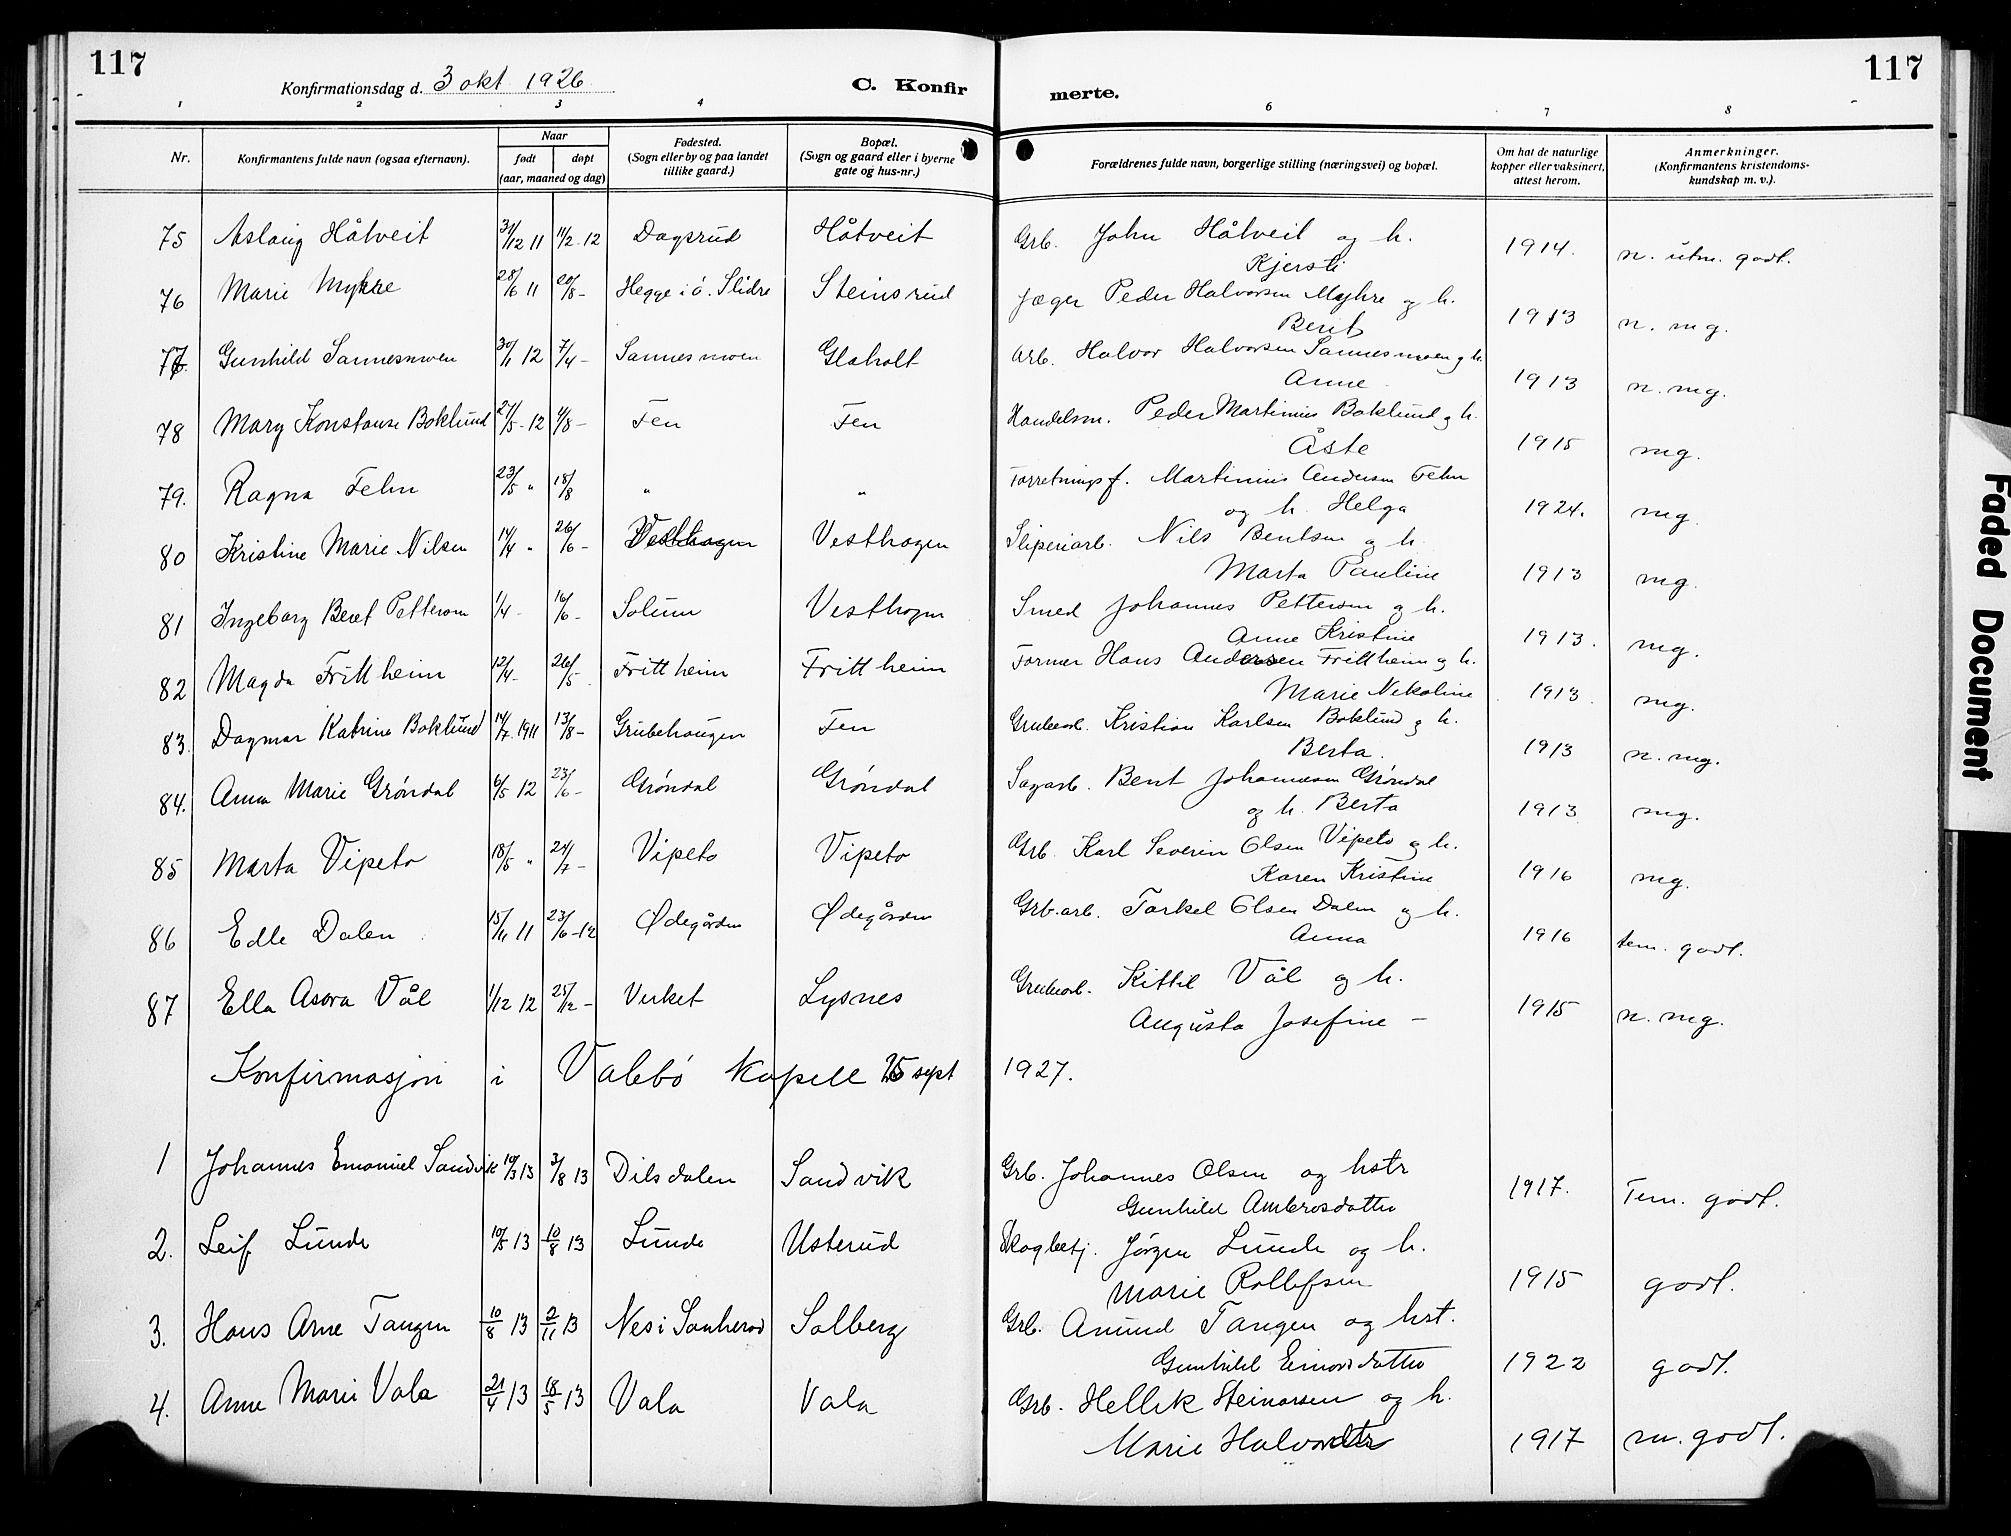 117
Konfirmationsdag d. 3 okt 1926
C. Konfir
merte.
117
1 2 3 4 6 7 8
Nr. Konfirmantens fulde navn (ogsaa efternavn). Naar født døpt (aar, maaned og dag) Fødested. (Sogn eller by og paa landet tillike gaard.) Bopæl. (Sogn og gaard eller i byerne gate og hus-nr.) Forældrenes fulde navn, borgerlige stilling (næringsvei) og bopæl. Om hat de naturlige kopper eller vaksinert, attest herom. Anmerkninger. (Konfirmantens kristendoms-kundskap m. v.).
75 Aslaug Håtveit 31/12 11 11/2 12 Dagsrud Håtveit Grb. John Håtveit og h. Kjersti 1914. n. utm. godt.
76 Marie Myhre 28/6 11 20/8 - Hegge i ö. Slidre Steinsrud Jæger Peder Halvorsen Myhre og h. Berit 1913 n. mg.
77 Gunhild Sannesmoen 30/1 12 7/4 - Sannesmoen Glaholt Arb. Halvor Halvorsen Sannesmoen og h. Anne 1913 n. mg.
78 Mary Konstanse Boklund 27/5 - 12 4/8 - Fen Fen Handelsm. Peder Martinius Boklund og h. Åste 1915 mg.
79. Ragna Fehn 23/5 " 18/8 " " Forretningsf. Martinius Andersen Fehn og h. Helga 1924. mg.
80 Kristine Marie Nilsen 14/4 " 26/6 - Vesthagen Vesthagen Sliperiarb. Nils Bentsen og h. Marta Pauline 1913 mg.
81 Ingeborg Beret Pettersen 1/4 - 16/6 - Solum Vesthagen Smed Johannes Pettersen og h. Anne Kristine 1913. mg.
82 Magda Frittheim 12/4 - 26/5 - Frittheim Frittheim Former Hans Andersen Frittheim og h. Marie Nikoline 1913 mg.
83. Dagmar Katrine Boklund 14/7 1911 13/8 - Grubehaugen Fen Grubearb. Kristian Karlsen Boklund og h. Berta. 1913 n. mg.
84. Anna Marie Grøndal 6/5 12 23/6 - Grøndal Grøndal Sagarb. Bent Johannesen Grøndal og h. Berta 1913 mg.
85 Marta Vipeto 18/5 " 24/7 - Vipeto Vipeto Grb. Karl Severin Olsen Vipeto og h. Karen Kristine 1916 mg.
86 Edle Dalen 15/11 11 23/6 - 12 Ødegården Ødegården Grb.arb. Torkel Olsen Dalen og h. Anna 1916 tem. godt.
87 Ella Asora Vål 1/12 12 25/12 - Verket Lysnes Grubearb. Kittil Vål og h. Augusta Josefine - 1915 n. mg.
Konfirmasjon i Valebö Kapell 25 sept 1927.
1 Johannes Emanuel Sandvik 19/3 13 3/8 13 Dilsdalen Sandvik Grb. Johannes Olsen og hstr Gunhild Ambrosdatter 1917. Tem. godt.
2. Leif Lunde 10/5 13 10/8 13 Lunde Usterud Skogbetj. Jørgen Lunde og h. Marie Rollefsen 1915 godt.
3. Hans Arne Tangen 10/8 13 2/11 13 Nes i Sauherad Solberg Grb. Amund Tangen og hst. Gunhild Einarsdatter 1922 godt.
4. Anne Marie Vala 21/4 13 18/5 13 Vala Vala Grb. Hellik Steinarsen og h. Marie Halvordtr 1917 m. godt.
Faded Document